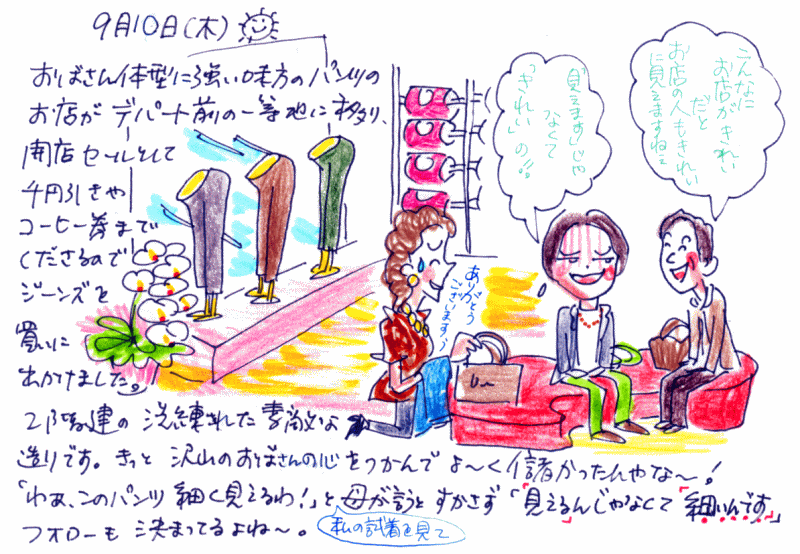 9月10日(木)
おばさん体型に強い味方のパンツの
お店がデパート前の一等地に移り、
開店セールとして
千円引きや
コーヒー券まで
くださるので
ジーンズを
買いに
出かけました。
2階建の洗練された高尚な
造りです。きっと沢山のおばさんの心をつかんでよ〜く儲かったんやな〜!
「わぁ、このパンツ細く見えるわ!」と母が言うとすかさず「見えるんじゃなくて細いんです」
フォローも決まってるよね〜。
私の試着を見て
ありがとう
ございますぅ
「見えます」じゃ
なくて
「きれい」の!!
こんなに
お店がきれい
だと
お店の人もきれい
に見えますねェ